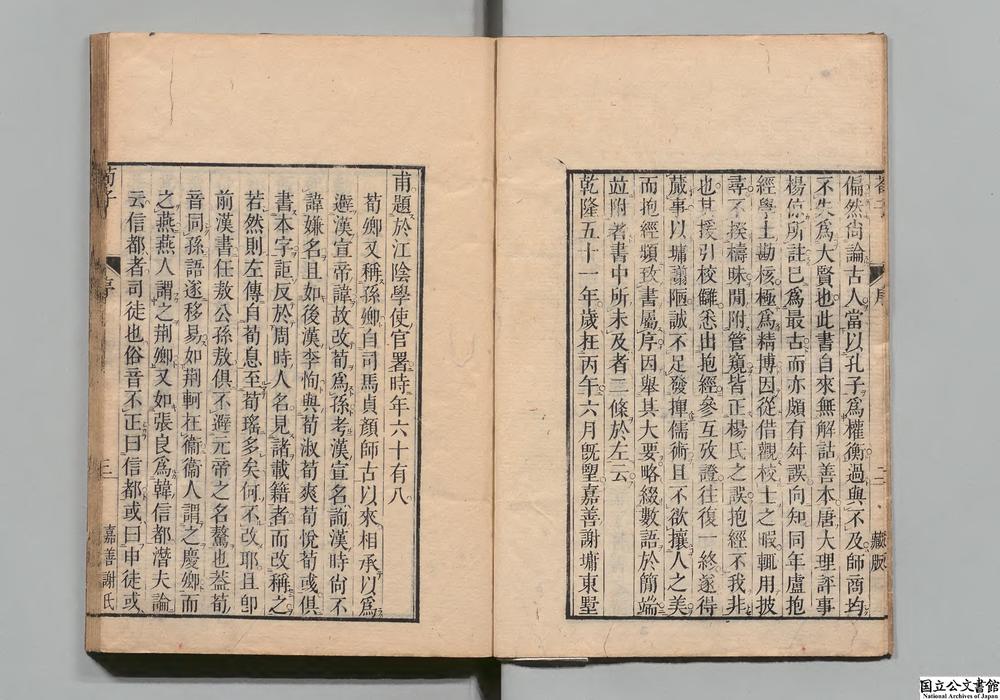 荀子
序
二
藏版
偏然尚論古人當以孔子爲權衡過與不及師商均
不失爲大賢也此書自來無解詁善本唐大理評事
楊倞所註已爲最古而亦頗有舛誤向知同年盧抱
經學士勘核極爲精博因從借觀校士之暇輒用披
尋不揆檮昧閒附管窺皆正楊氏之誤抱經不我非
也其援引校讎悉出抱經參互攷證往復一終遂得
蕆事以墉譾陋誠不足發揮儒術且不欲攘人之美
而抱經頻致書屬序因舉其大要略綴數語於簡端
竝附著書中所未及者三條於左云
乾隆五十一年歲在丙午六月旣望嘉善謝墉東墅
甫題於江陰學使官署時年六十有八
荀卿又稱孫卿自司馬貞顏師古以來相承以爲
避漢宣帝諱故改荀爲孫考漢宣名詢漢時尚不
諱嫌名且如後漢李恂與荀淑荀爽荀悅荀彧俱
書本字詎反於周時人名見諸載籍者而改稱之
若然則左傳自荀息至荀瑤多矣何不改耶且卽
前漢書任敖公孫敖俱不避元帝之名驁也葢荀
音同孫語遂移易如荆軻在衞衞人謂之慶卿而
之燕燕人謂之荆卿又如張良爲韓信都潛夫論
云信都者司徒也俗音不正曰信都或曰申徒或
荀子
序
三
嘉善謝氏
国立公文書館
National Archives of Japan